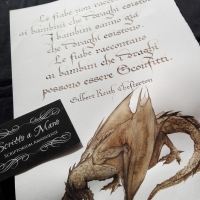 Le fiabe non racco
ai bambini che i draghi esistono.
I bambini sanno già
che i draghi esistono.
Le fiabe raccontano
ai bambini che i draghi
possono essere sconfitti.
Gilbert Keith Chesterton
Scritto a Mano